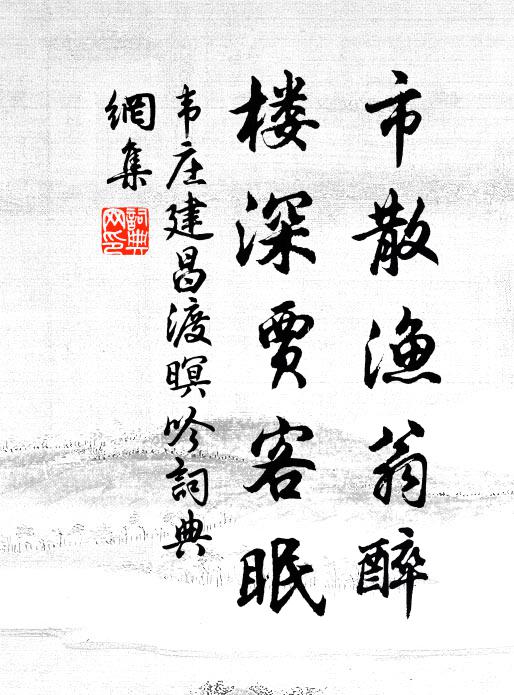 市散渔翁醉
楼深贾客眠
韦庄建昌渡暝吟词典
網集
詞典
网印